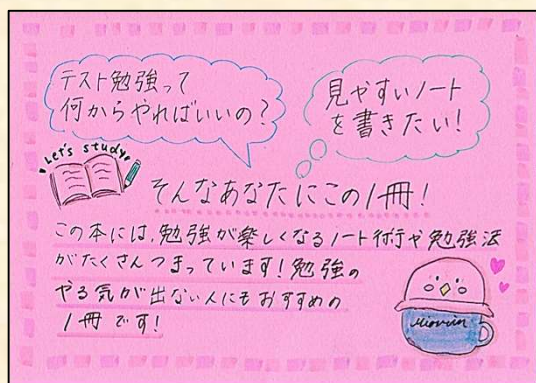 テスト勉強って
何からやればいいの?
見やすいノート
を書きたい!
Let's study
そんなあなたにこの1冊!
この本には、勉強が楽しくなるノート術や勉強法
がたくさんつまっています!勉強の
やる気が出ない人にもおすすめの
1冊です!